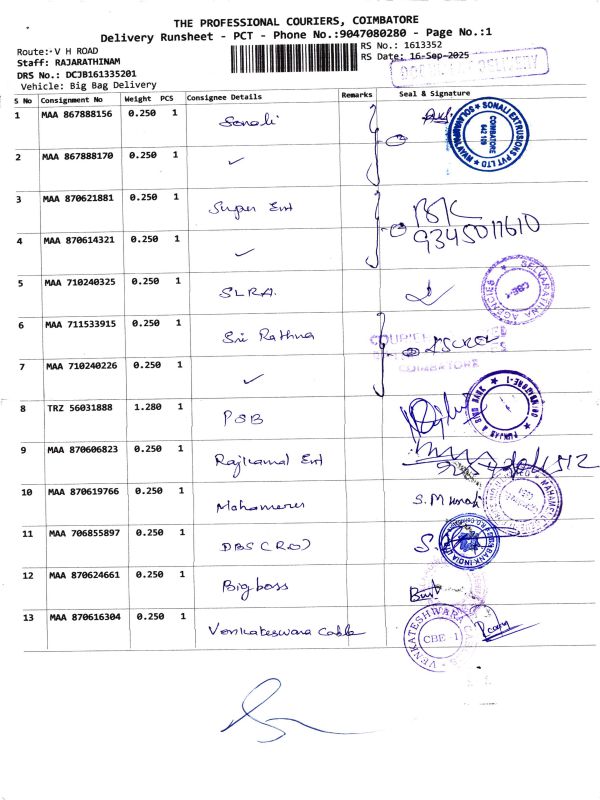 THE PROFESSIONAL COURIERS, COIMBATORE
Delivery Runsheet - PCT - Phone No.:9047080280 - Page No.:1
Route: V H ROAD
RS No.: 1613352
Staff: RAJARATHINAM
RS Date: 16-Sep-2025
DRS No.: DCJB161335201
DELIVERY
Vehicle: Big Bag Delivery
S No Consignment No Weight PCS Consignee Details Remarks Seal & Signature
1 MAA 867888156 0.250 1 Sonali
SONALI EXTRUSIONS PVT LTD
COIMBATORE
642 109
2 MAA 867888170 0.250 1 ✓
3 MAA 870621881 0.250 1 Super Ent
4 MAA 870614321 0.250 1 ✓ 9345011610
5 MAA 710240325 0.250 1 SLRA.
SELVARATHNA AGENCIES
CBE-1
6 MAA 711533915 0.250 1 Sri Rathna
COIMBATORE
7 MAA 710240226 0.250 1 ✓
8 TRZ 56031888 1.280 1 PSB
PUNJAB & SIND BANK
COIMBATORE-1
9 MAA 870606823 0.250 1 Rajkamal Ent
10 MAA 870619766 0.250 1 Mahameru
11 MAA 706855897 0.250 1 DBS (RO)
BANK INDIA
12 MAA 870624661 0.250 1 Bigboss
13 MAA 870616304 0.250 1 Venkateswara Cable
VENKATESHWARA
CBE - 1